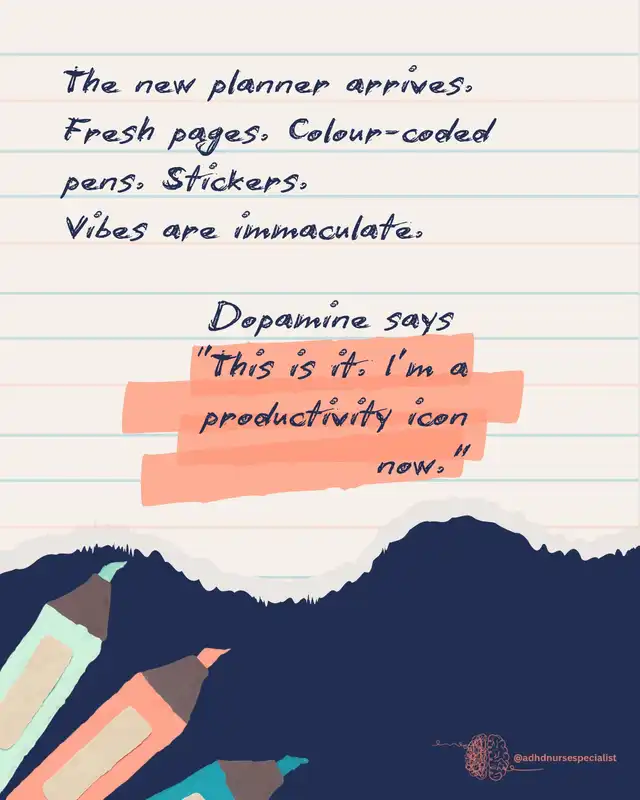 The new planner arrives.
Fresh pages. Colour-coded
pens. Stickers.
Vibes are immaculate.
Dopamine says
"This is it. I'm a
productivity icon
now."
@adhdnursespecialist